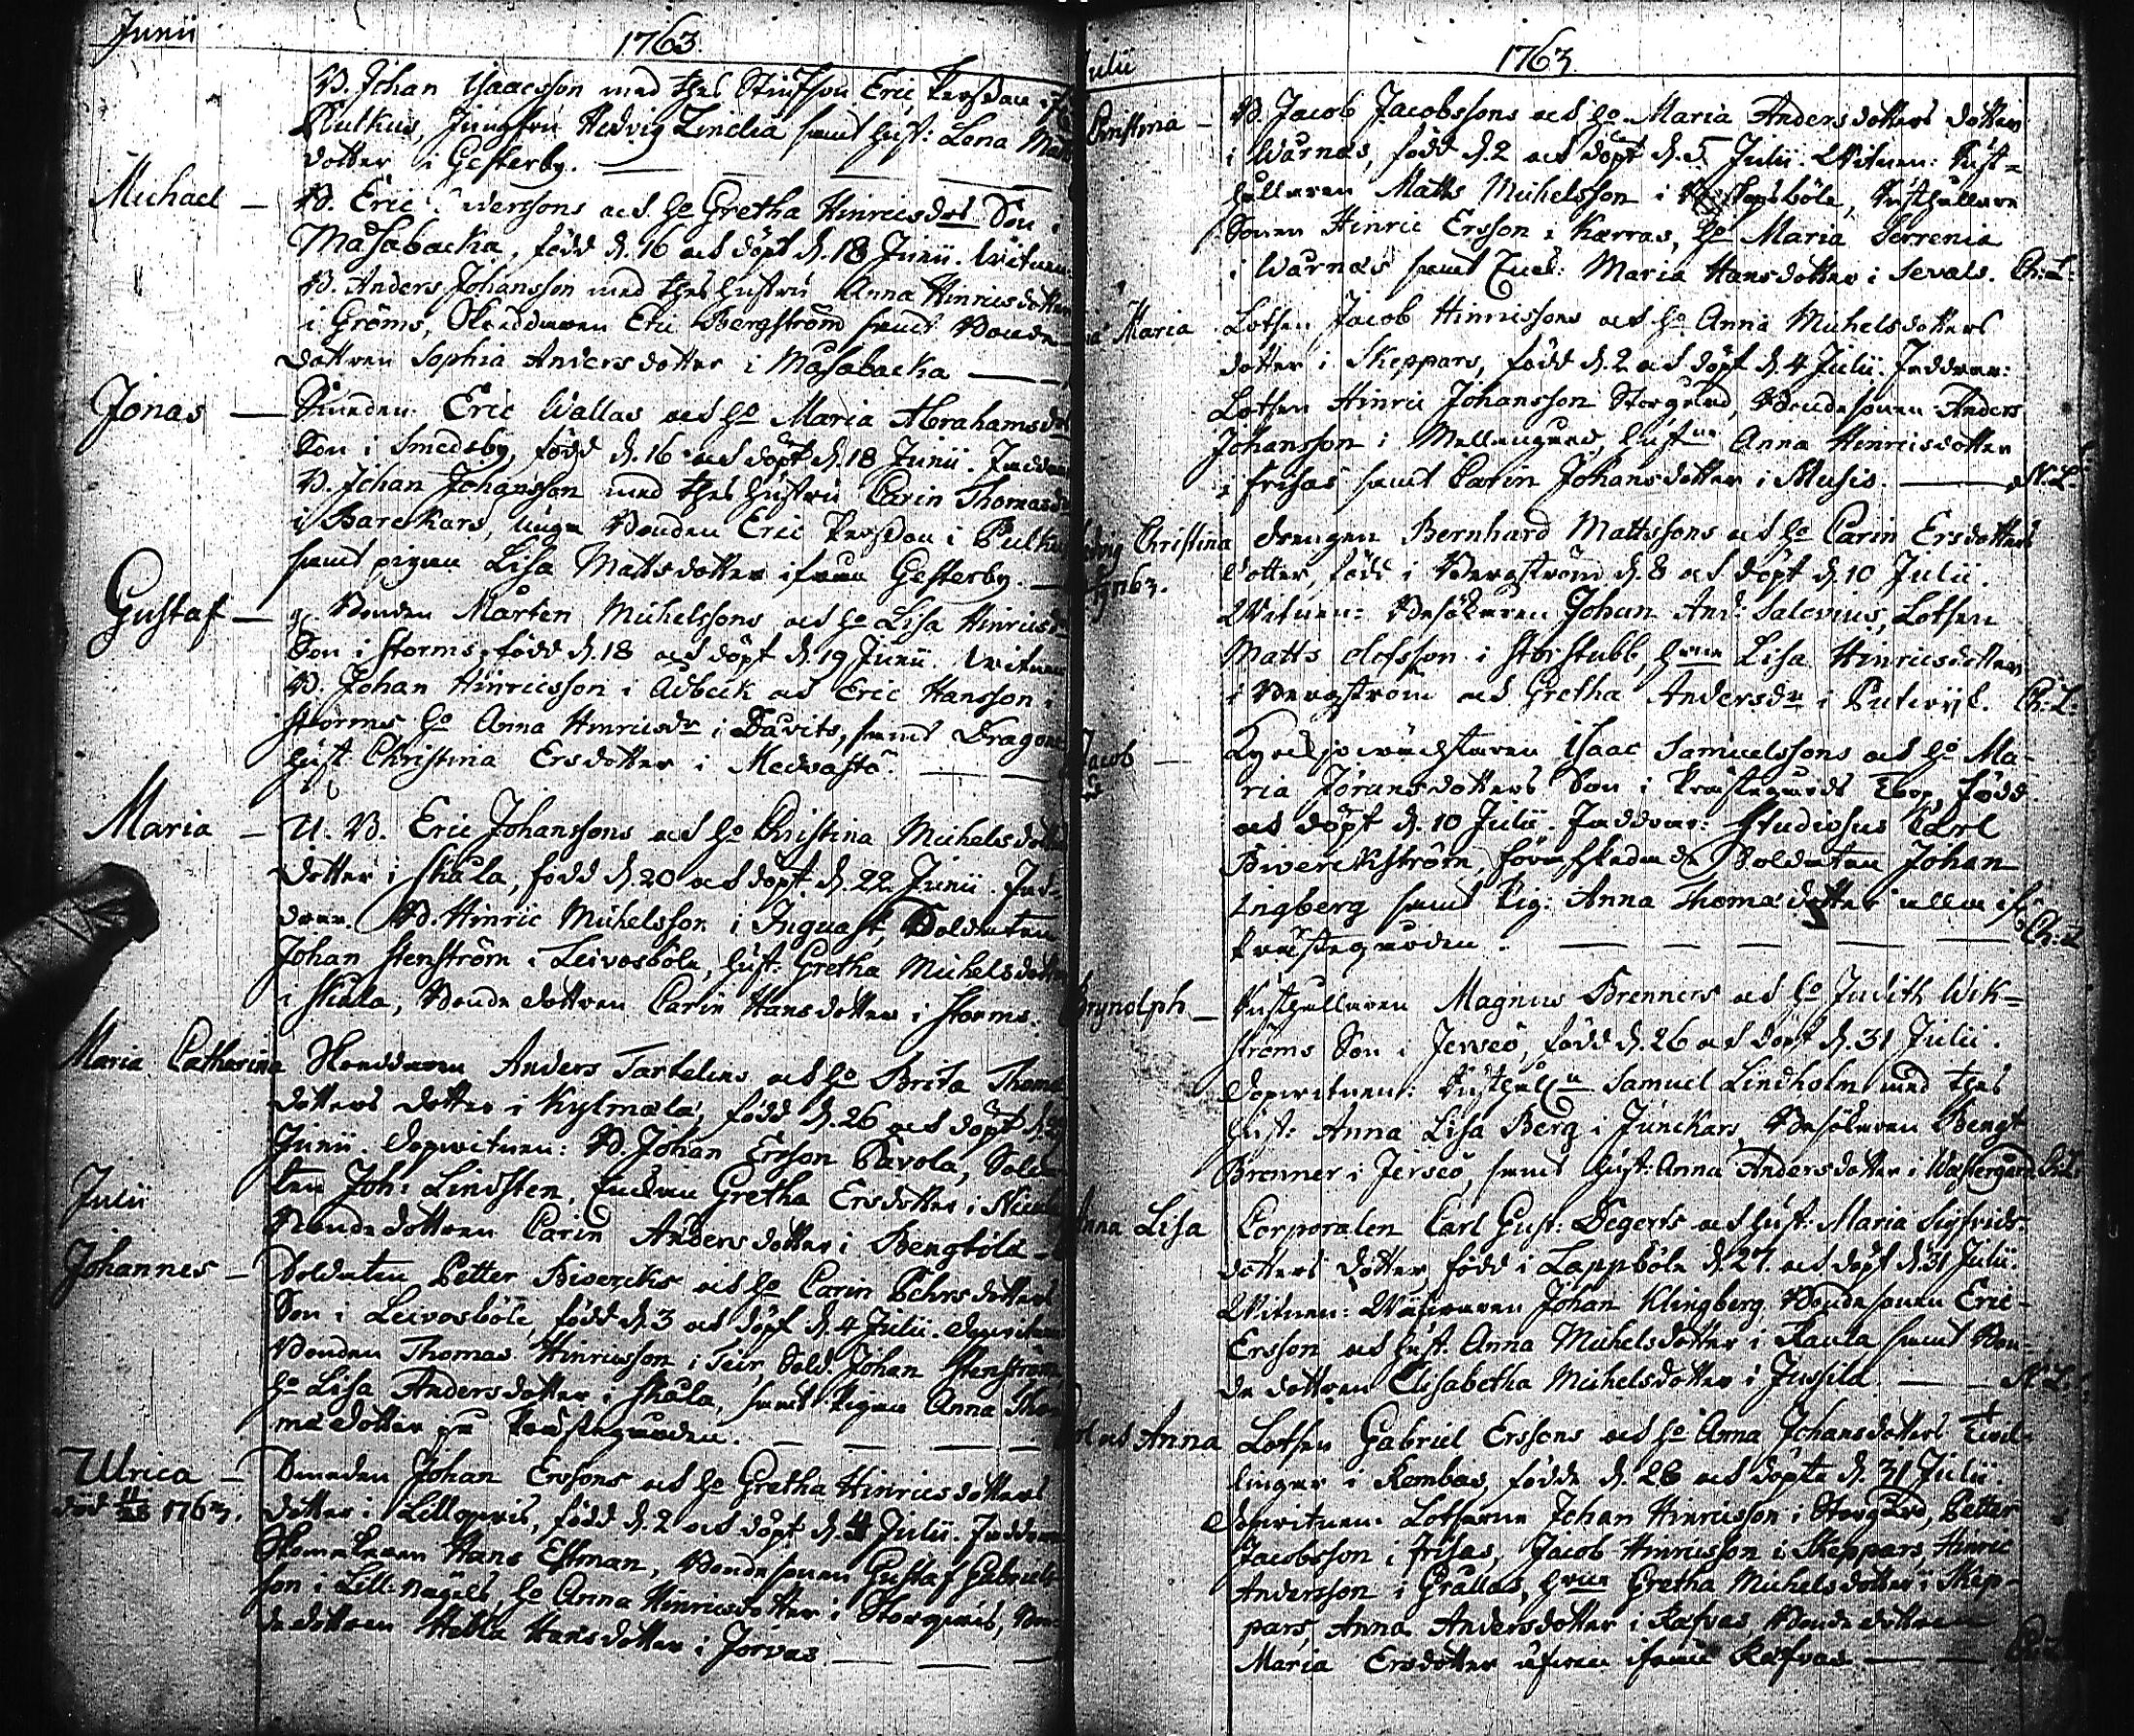 Junii 1763.
B. Johan Isaacsson med thes Eric
Jungfru Hedvig Zinclia samt hust: Lena
dotter i Gesterby.
Michael — B. Eric och h:o Gretha Hinricsdrs Son i
Masabacka, född d. 16 och döpt d. 18 Junii. Witnen
B. Anders Johansson med thes hustru Anna Hinricsdotter
i Gröms, Skräddaren Eric Bergström samt Bonde
dottren Sophia Andersdotter i Masabacka
Jonas — Eric Wallas och h:o Maria Abrahamsdrs
Son i Smedsby, född d. 16 och döpt d. 18 Junii.
B. Johan Johansson med thes hustru Carin Thomasdr
i Barckars, unga Bonden Eric i
samt pigan Lisa Mattsdotter ifrån Gesterby.
Gustaf — Bonden Mårten Michelssons och h:o Lisa Hinricsdrs
Son i Storms, född d. 18 och döpt d. 19 Junii. Witnen
B. Johan Hinricsson i Adbeck och Eric Hansson i
Storms h:o Anna Hinricsdr i Davits, samt Dragone
hust. Christina Ersdotter i Medvastö.
Maria — U. B. Eric Johanssons och h:o Christina Michelsdotters
dotter i Skåla, född d. 20 och döpt d. 22 Junii. Fad-
drar. B. Hinric Michelsson i Ingvast, Soldaten
Johan Stenström i Leivosböle, hust: Gretha Michelsdotter
i Skåla, Bonde dottren Carin Hansdotter i Storms.
Maria Catharina Skräddaren Anders Tartelins och h:o Brita Thomæ
dotters dotter i Kylmäla, född d. 26 och döpt d.
Junii. Dopwitnen: B. Johan Ersson Pavola, Solda-
ten Joh: Lindsten, Enckan Gretha Ersdotter i
Julii Bonde dottren Carin Andersdotter i Bengtölä
Johannes — Soldaten Petter Bivercks och h:o Carin Pehrsdotters
Son i Leivosböle, född d. 3 och döpt d. 4 Julii. Dopwitnen
Bonden Thomas Hinricsson i Teir, Sold. Johan Stenström,
h:o Lisa Andersdotter i Skåla, samt Pigan Anna Tho-
mædotter på Prästegården.
Ulrica — Bonden Johan Erssons och h:o Gretha Hinricsdotters
död 1763. dotter i Lillqwis, född d. 2 och döpt d. 4 Julii. Faddrar
Skomakaren Hans Estman, Bondesonen Gustaf Gabriels-
son i Lill: Nägels, h:o Anna Hinricsdotter i Storqwis, Bon-
de dottren Hebla Hansdotter i Jorvas
Julii 1763.
Christina — B. Jacob Jacobssons och h:o Maria Andersdotters dotter
i Warnäs, född d. 2 och döpt d. 5 Julii. Witnen: Rust-
hållaren Matts Michelsson i, Rusthållare
Sonen Hinric Ersson i Karras, h:o Maria Serrenia
i Warnäs samt Enck: Maria Hansdotter i Sevals. Ch: L:
Maria Lotsen Jacob Hinricssons och h:o Anna Michelsdotters
dotter i Skeppars, född d. 2 och döpt d. 4 Julii. Faddrar:
Lotsen Hinric Johansson Storgård, Bondesonen Anders
Johansson i Mellangård, Anna Hinricsdotter
i Frisas samt Carin Johansdotter i Musis. N. L.
Christina Drengen Bernhard Mattssons och h:o Carin Ersdotters
1763. dotter, född i Bergström d. 8 och döpt d. 10 Julii.
Witnen: Besökaren Johan And: Salenius, Lotsen
Matts Olofsson i Storstubb, Lisa Hinricsdotter
i Bergström och Gretha Andersdr i. Ch: L:
Jacob — Kyrckjowäcktaren Isaac Samuelssons och h:o Ma-
ria Jöransdotters Son i Prästegårds Torp, född
och döpt d. 10 Julii. Faddrar: Studiosus Carl
Biverckström, Soldaten Johan
Ingberg samt Pig: Anna Thomædotter alla ifr.
Prästegården. Ch: L
Brynolph — Rusthållaren Magnus Brenners och h:o Judith Wik-
ströms Son i Jerseö, född d. 26 och döpt d. 31 Julii.
Dopwitnen: Samuel Lindholm med thes
hust: Anna Lisa Berg i Junckars, Besökaren Bengt
Brenner i Jerseö, samt hust: Anna Andersdotter i Wästergård
Anna Lisa Corporalen Carl Gust: Degerts och hust: Maria Sigfrids-
dotters dotter, född i Lappböle d. 27. och döpt d. 31 Julii.
Witnen: Johan Klingberg, Bondesonen Eric
Ersson och hust. Anna Michelsdotter i Raula samt Bon-
de dottren Elisabetha Michelsdotter i Jussila. N. L:
Anna Lotsen Gabriel Erssons och h:o Anna Johansdotters Twil-
lingar i Rembas, födde d. 28 och döpte d. 31 Julii.
Dopwitnen. Lotsarne Johan Hinricsson i Storgård, Petter
Jacobsson i Frisas, Jacob Hinricsson i Skeppars, Hinric
Andersson i Grällas, Gretha Michelsdotter i Skep-
pars, Anna Andersdotter i Rafvas, Bondedottren
Maria Ersdotter ifrån Rafvas